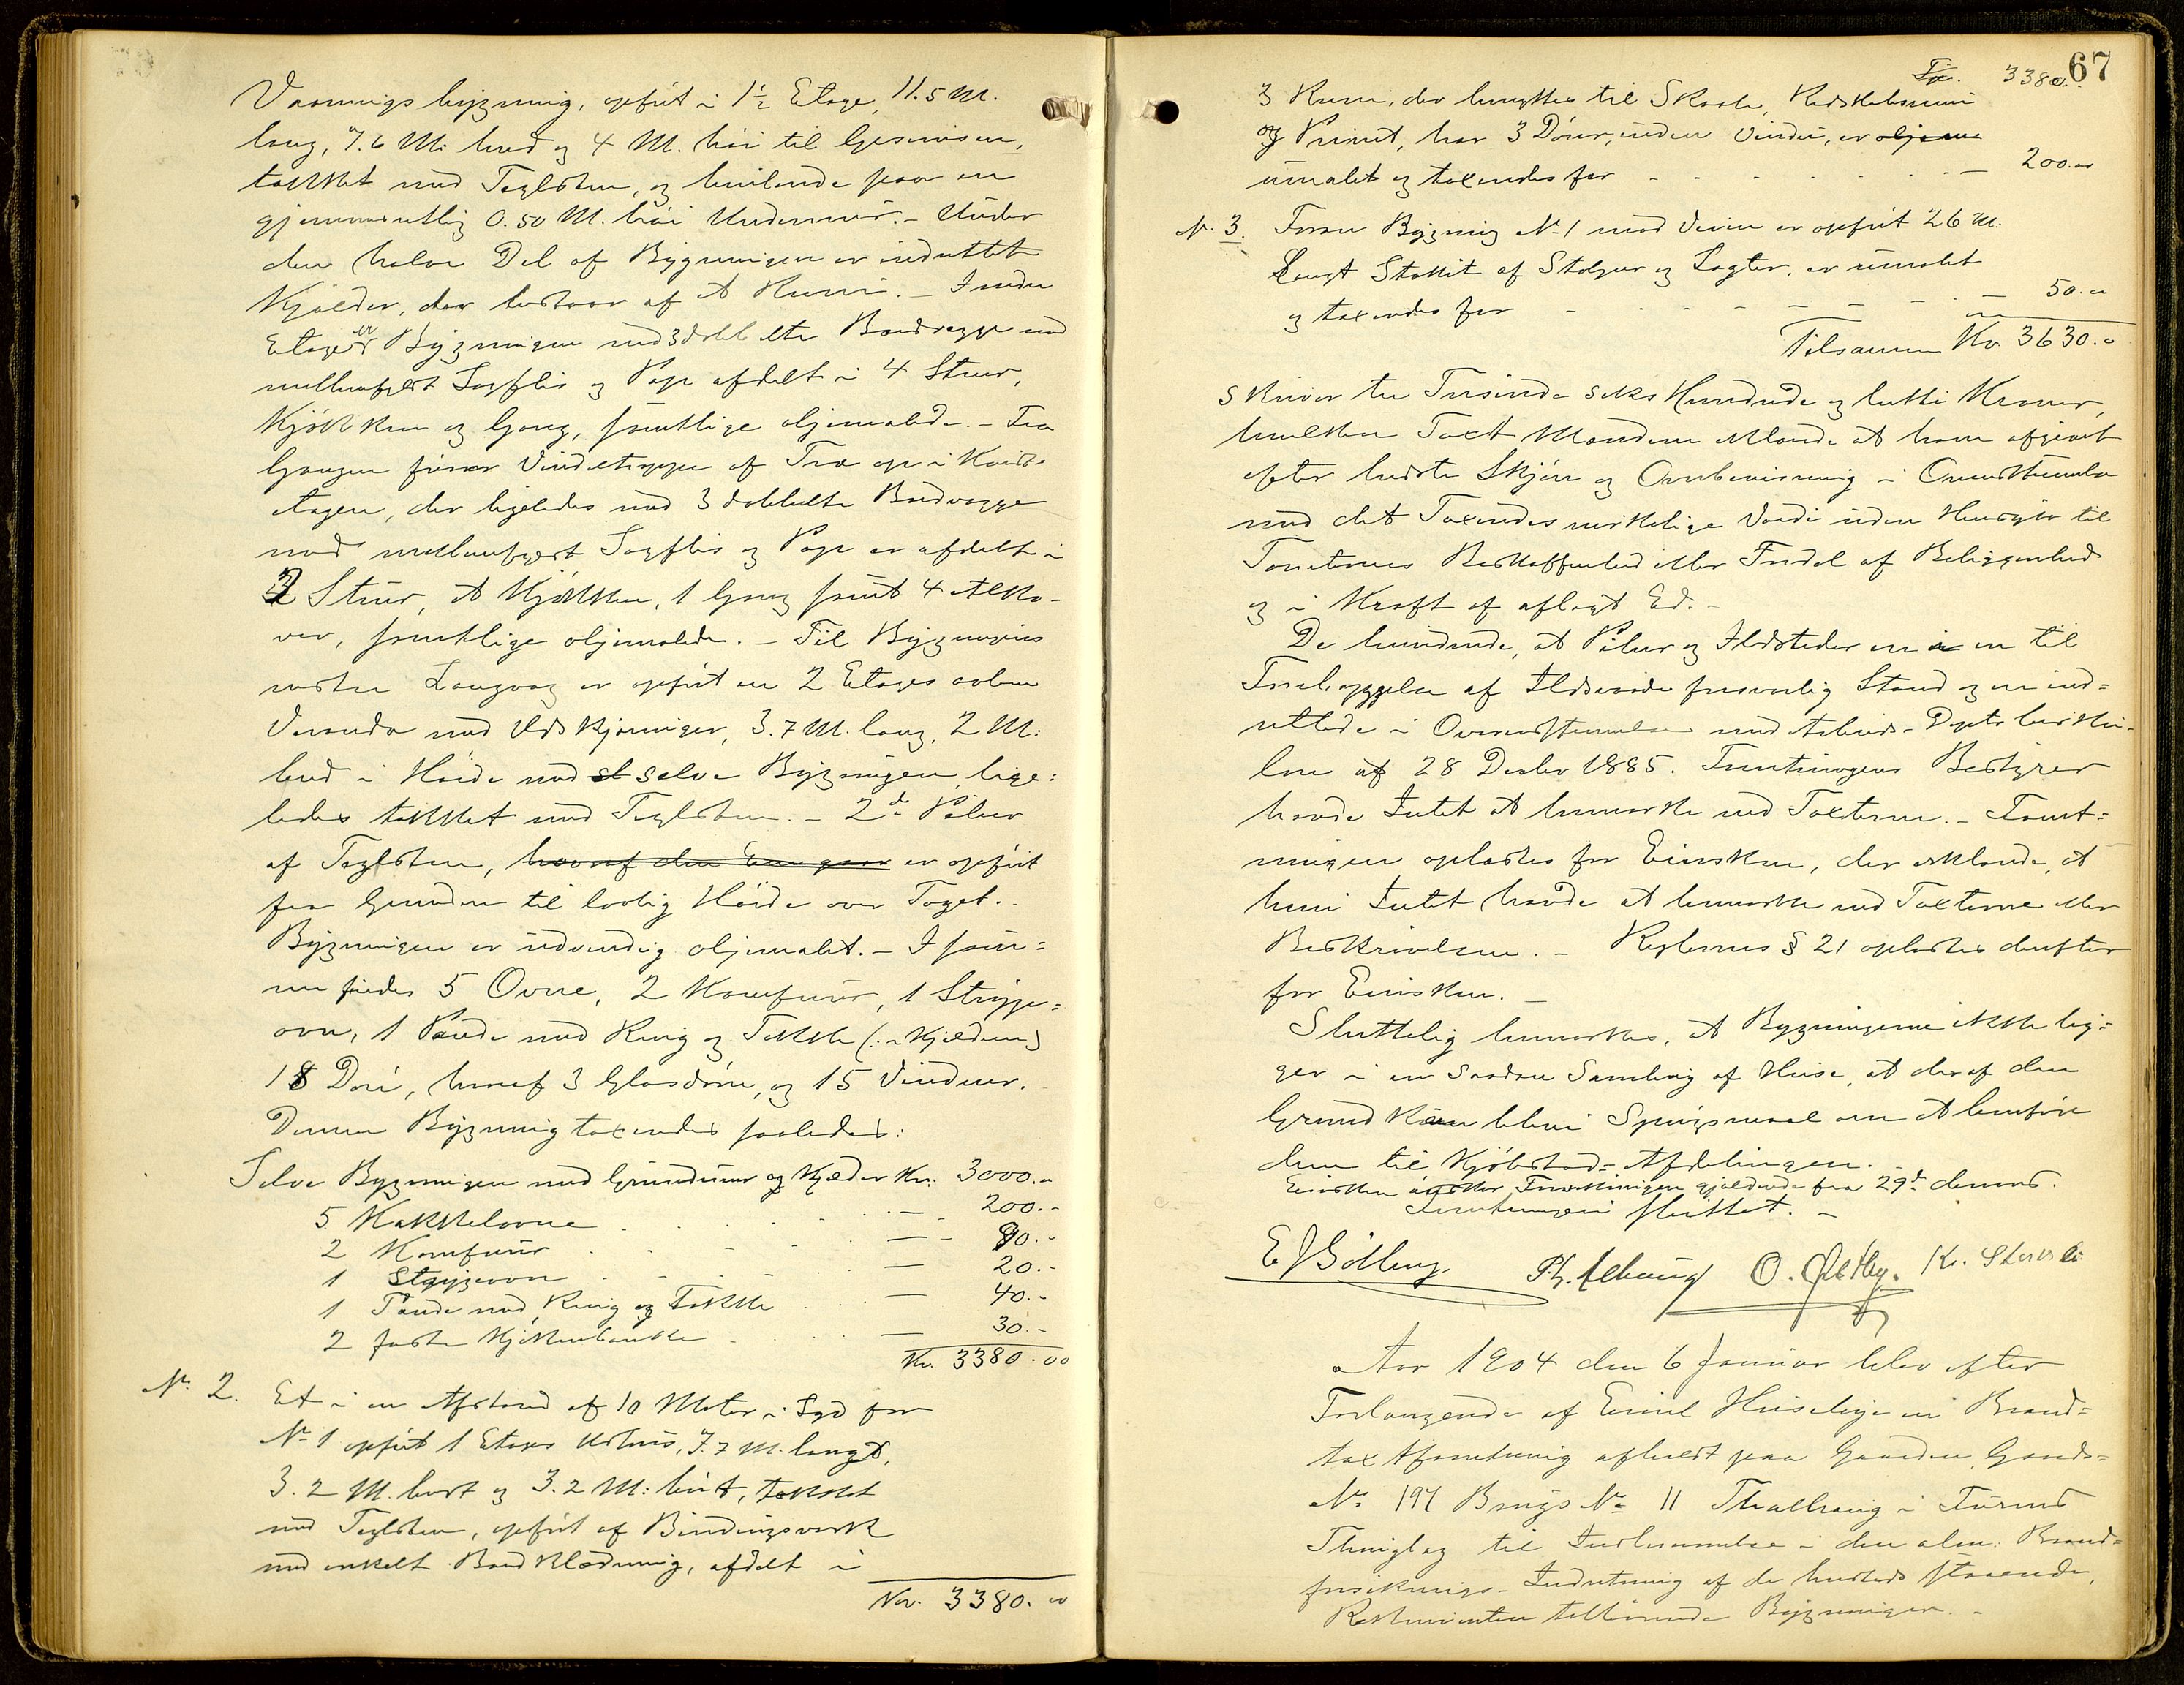 Vaanings bygning, opført i 1½ Etage, 11.5 M.
lang, 7.6 M. bred og 4 M. høi til Gesimsen,
tækket med Taglsten, og hvilende paa en
gjennemsnitlig 0.50 M. høi Undermur. - Under
den halve Del af Bygningen er indrettet
Kjælder, der bestaar af et Rum. - I nedre
Etage er Bygningen med 3 dobbelte Bordvægge med
mellemfyldt Sagflis og Pap afdelt i 4 Stuer,
Kjøkken og Gang, samtlige oljemalede. - Fra
Gangen fører Vindeltrappe af Træ op i Kvist-
etagen, der ligeledes med 3 dobbelte Bordvægge
med mellemfyldt Sagflis og Pap er afdelt i
3 Stuer, et Kjøkken, 1 Gang samt 4 Alko-
ver, samtlige oljemalede. - Til Bygningens
vestre Langvæg er opført en 2 Etages aaben
Veranda med Udskjæringer, 3.7 M. lang, 2 M.
bred i Høide med selve Bygningen, lige-
ledes tækket med Taglsten. - 2de Piber
af Taglsten, hvoraf den Ene gaar er opført
fra Grunden til lovlig Høide over Taget. -
Bygningen er udvendig oljemalet. - I sam-
me findes 5 Ovne, 2 Komfurer, 1 Stryge-
ovn, 1 Pande med Ring og Takke (: i Kjælderen)
18 Døre, hvoraf 3 Glasdøre, og 15 Vinduer.
Denne Bygning taxeredes saaledes:
Selve Bygningen med Grundmur og Kjælder Kr. 3000.00
5 Kakkelovne . . . — 200.-
2 Komfurer . . . — 90.-
1 Strygeovn . . . — 20.-
1 Pande med Ring og Takke . . — 40.-
2 faste Kjøkkenbænke . . — 30.-
Kr. 3380.00
No. 2. Et i en Afstand af 10 Meter i Syd for
No 1 opført 1 Etages Udhus, 7.7 M. langt,
3.2 M. bredt og 3.2 M. høit, tækket
med Taglsten, opført af Bindingsværk
med enkelt Bordklædning, afdelt i
Kr. 3380.00
67
Tr. 3380.
3 Rum, der benyttes til Skaale, Redskabsrum
og Privet, har 3 Døre, uden Vinduer, er oljem
umalet og taxeredes for - - - — 200.00
No. 3. Foran Bygning No 1 mod Veien er opført 26 M.
Langt Stakit af Stolper og Lægter, er umalet
og taxeredes for - - - — 50.00
Tilsammen Kr. 3630.00
skriver tre Tusinde seks Hundrede og tretti Kroner,
hvilken Taxt Mændene erklærede at have afgivet
efter bedste Skjøn og Overbevisning i Overensstemmelse
med det Taxeredes virkelige Værdi uden Hensyn til
Tomternes Beskaffenhed eller Fordel af Beliggenhed
og i Kraft af aflagt Ed. -
De bevidnede, at Piber og Ildsteder er i en til
Forebyggelse af Ildsvaade forsvarlig Stand og er ind-
rettede i Overensstemmelse med Arbeids-Dpts beskri-
lse af 28 Decbr 1885. Forretningens Bestyrer
havde Intet at bemærke ved Taxterne. - Forret-
ningen oplæstes for Eierskeen, der erklærede, at
hun Intet havde at bemærke ved Taxterne eller
Beskrivelsen. - Reglernes § 21 oplæstes derefter
for Eiersken. -
Sluttelig bemærkes, at Bygningerne ikke lig-
ger i en saadan Samling af Huse, at der af den
Grund kan blive Spørgsmaal om at henføre
dem til Kjøbstad-Afdelingen.
Eiersken ønsker Forsikringen gjældende fra 29de dennes.
Forretningen sluttet. -
E J Gölberg. O. Østby.
Aar 1904 den 6 Januar blev efter
Forlangende af Emil Huseby en Brand-
taxtforretning afholdt paa Gaarden, Gaards-
No 197 Brugs No 11 i Furnes
Thinglag til Indlemmelse i den alm. Brand-
forsikrings-Indretning af de hersteds staaende,
Rekvirenten tilhørende Bygninger. -